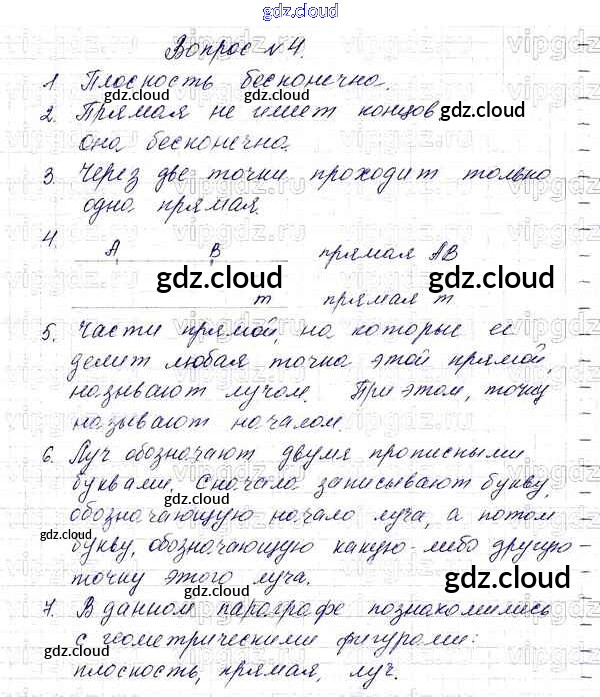 gdz.cloud
Вопрос №4.
1. Плоскость бесконечна.
gdz.cloud gdz.cloud
2. Прямая не имеет концов gdz.cloud
она бесконечна.
3. Через две точки проходит только
одна прямая.
4.
A B прямая AB
gdz.cloud gdz.cloud
m прямая m
5. Части прямой, на которые ее
делит любая точка этой прямой,
называют лучом. При этом, точку
называют началом.
6. Луч обозначают двумя прописными
буквами. Сначала записывают букву,
gdz.cloud
обозначающую начало луча, а потом
gdz.cloud
букву, обозначающую какую-либо другую
точку этого луча. gdz.cloud
7. В данном параграфе познакомились
с геометрическими фигурами:
gdz.cloud gdz.cloud
плоскость, прямая, луч.
gdz.cloud
vipgdz.ru